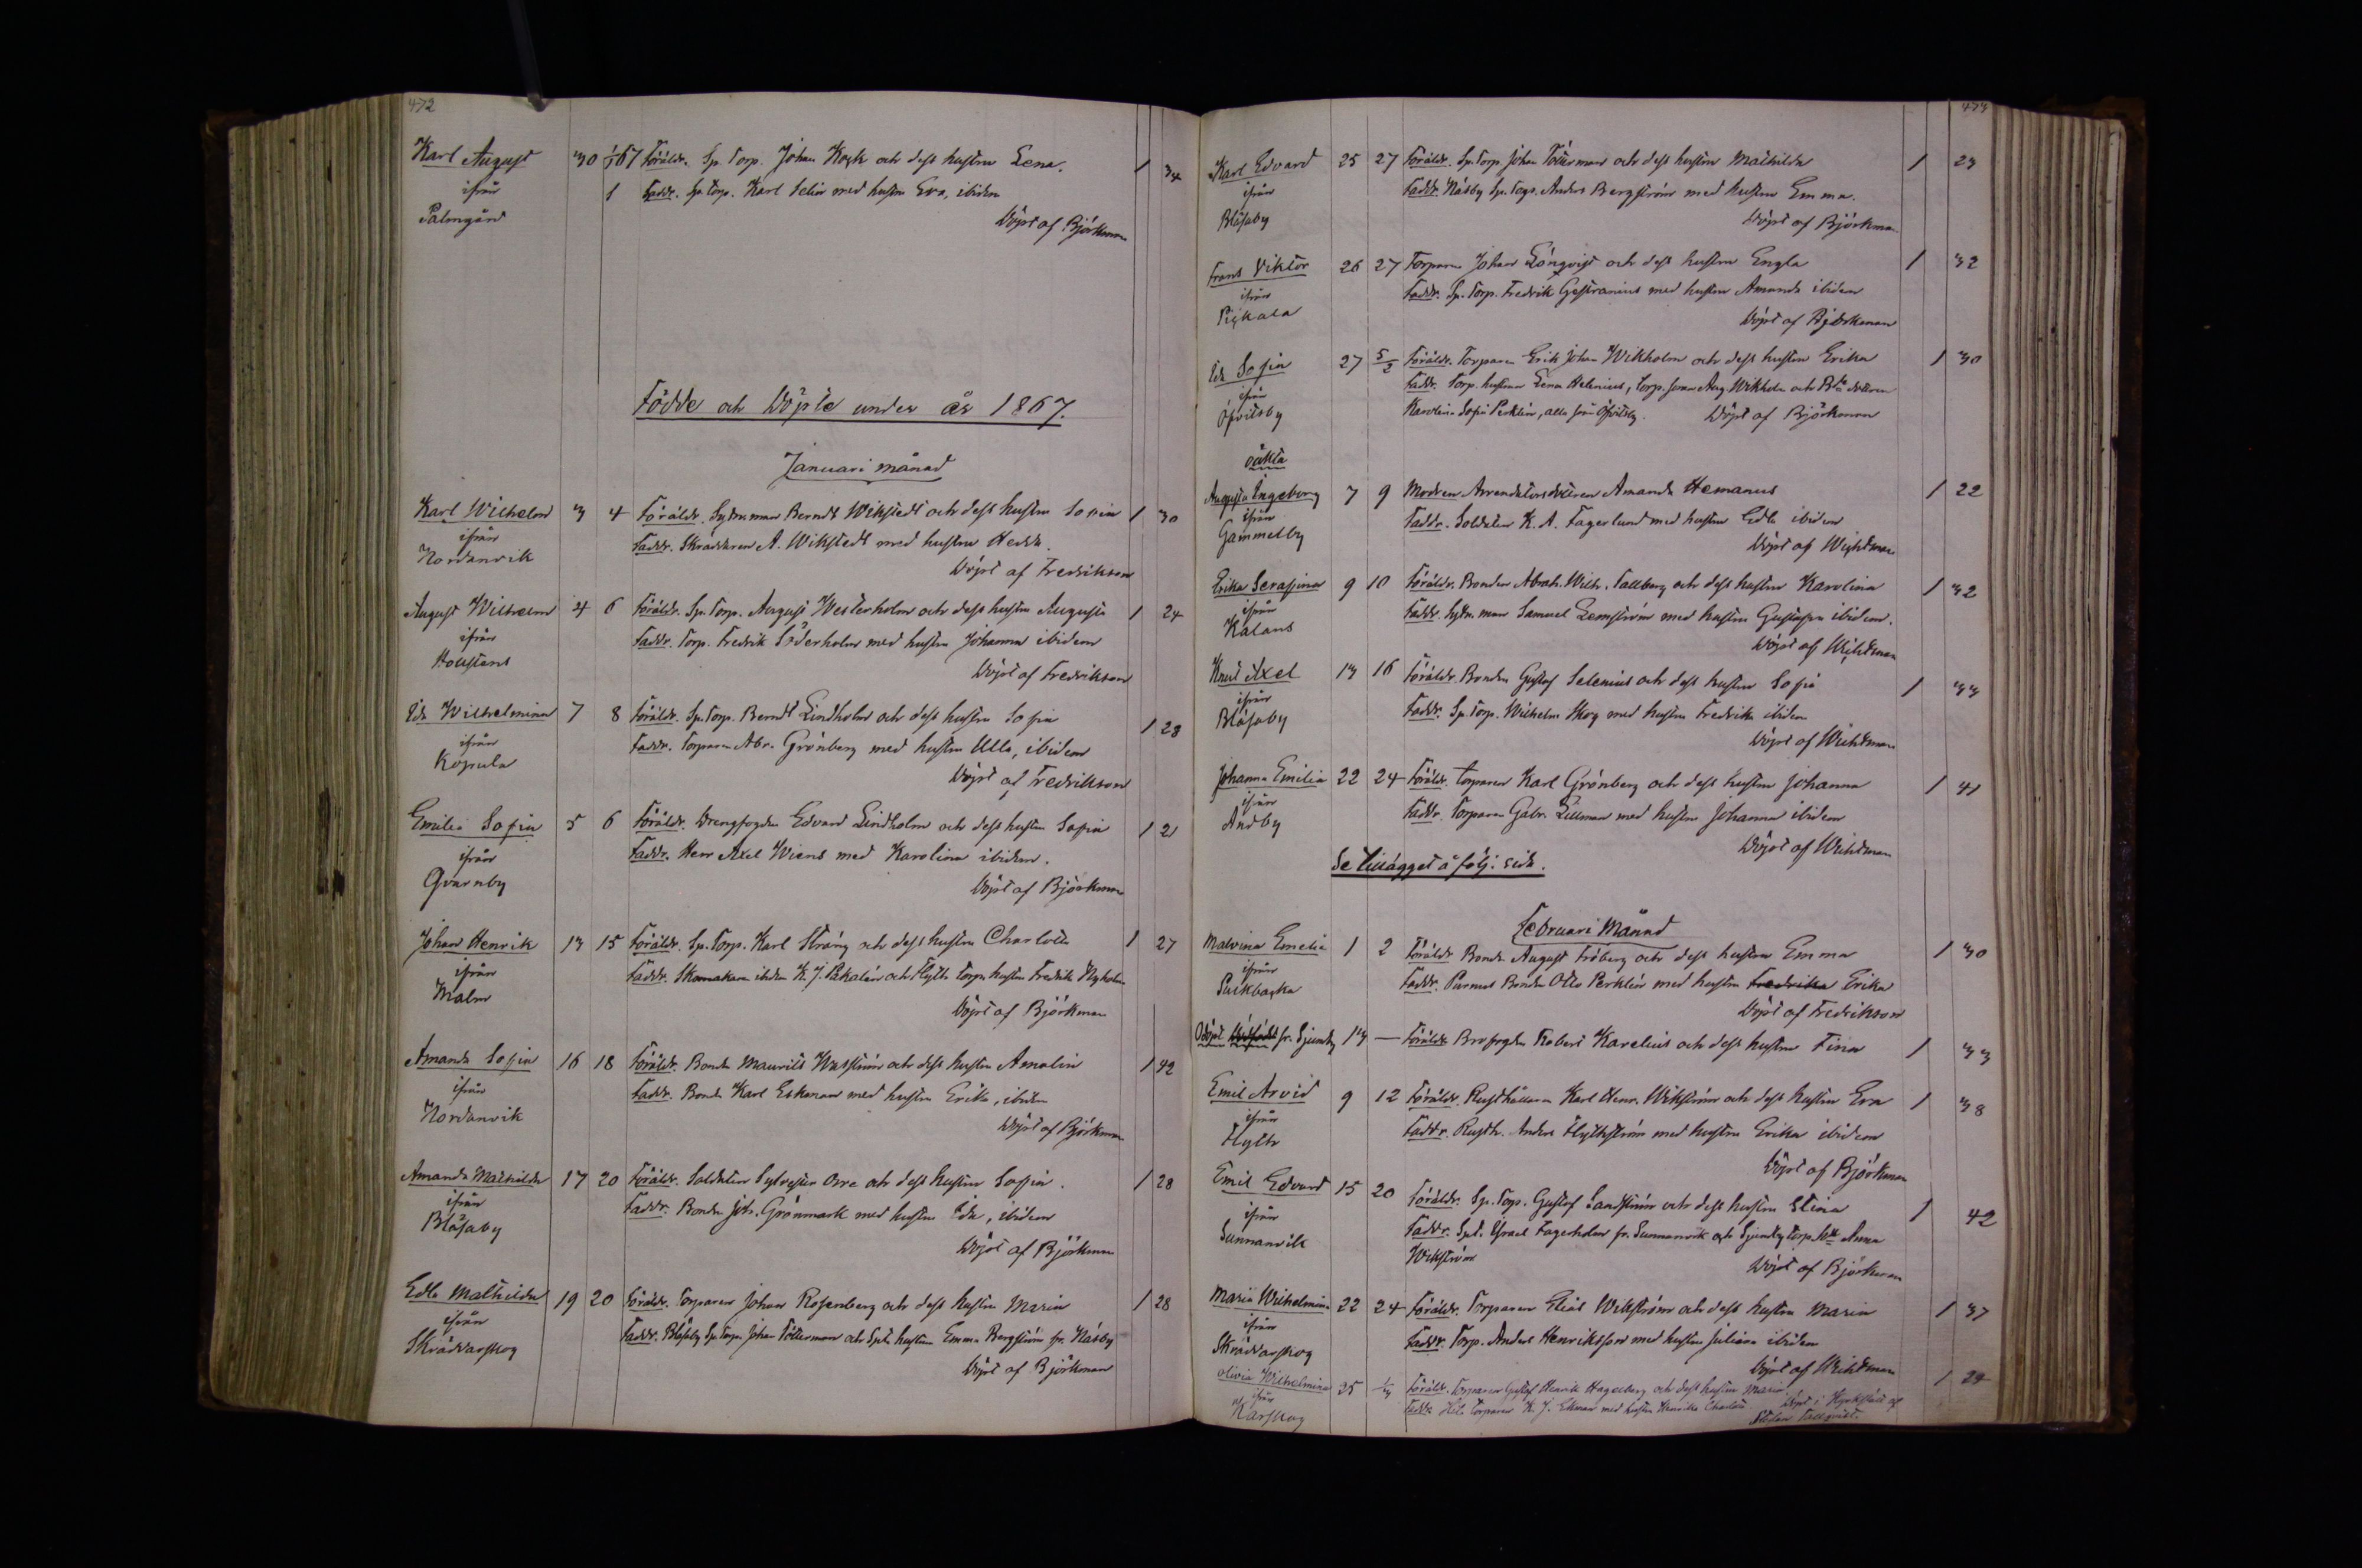 472
Karl August 30 1/1 67 Föräldr. Sp. Torp. Johan Kock och dess hustru Lena. 1 34
ifrån 1 Faddr. Sp. Torp. Karl Selin med hustru Eva, ibidem
Palmgård Döpt af Björkman
Födde och Döpte under år 1867.
Januari månad
Karl Wilhelm 3 4 Föräldr. Sytn.man Berndt Wikstedt och dess hustru Sofia 1 30
ifrån Faddr. Skräddaren A. Wikstedt med hustru Hedda.
Nordanvik Döpt af Fredrikson
August Wilhelm 4 6 Föräldr. Sp. Torp. August Westerholm och dess hustru Augusta 1 24
ifrån Faddr. Torp. Fredrik Söderholm med hustru Johanna ibidem
Döpt af Fredrikson
Ida Wilhelmina 7 8 Föräldr. Sp. Torp. Berndt Lindholm och dess hustru Sofia 1 23
ifrån Faddr. Torparen Abr. Grönberg med hustru Ulla, ibidem
Köpula Döpt af Fredrikson
Emilia Sofia 5 6 Föräldr. Drengfogden Edvard Lindholm och dess hustru Sofia 1 21
ifrån Faddr. Herr Axel Wiens med Karolina ibidem.
Qvarnby Döpt af Björkman
Johan Henrik 13 15 Föräldr. Sp. Torp. Karl Sträng och dess hustru Charlotta 1 27
ifrån Faddr. Skomakaren ibidem K. J. och Flyt Torp. hustru Fredrika Nyholm
Malm Döpt af Björkman
Amanda Sofia 16 18 Föräldr. Bonden Maurits Wasström och dess hustru Amalia 1 42
ifrån Faddr. Bonden Karl Eskman med hustru Erika, ibidem
Nordanvik Döpt af Björkman
Amanda Mathilda 17 20 Föräldr. Soldaten Sylvester Orre och dess hustru Sofia. 1 28
ifrån Faddr. Bonden Joh. Grönmark med hustru Ida, ibidem
Blåsaby Döpt af Björkman
Edla Mathilda 19 20 Föräldr. Torparen Johan Rosenberg och dess hustru Maria 1 28
ifrån Faddr. Blåsaby Sp. Torp. Johan Tötterman och hustru Emma Bergström fr. Näsby
Skräddarskog Döpt af Björkman
473
Karl Edvard 25 27 Föräldr. Sp. Torp. Johan Tötterman och dess hustru Mathilda 1 23
ifrån Faddr. Näsby Sp. Torp. Anders Bergström med hustru Emma.
Blåsaby Döpt af Björkman
Frans Viktor 26 27 Torparen Johan Lönqvist och dess hustru Engla 1 32
ifrån Faddr. Sp. Torp. Fredrik Gestranius med hustru Amanda ibidem
Pickala Döpt af Björkman
Ida Sofia 27 5/2 Föräldr. Torparen Erik Johan Wikholm och dess hustru Erika 1 30
ifrån Faddr. Torp. hustrun Lena Helenius, Torp. sonen Aug. Wikholm och dottren
Karolina Sofia Perklén, alla från Öfvitsby. Döpt af Björkman
Öfvitsby
oäkta
Augusta Ingeborg 7 9 Modren Arrendatorsdottren Amanda Hemanus 1 22
ifrån Faddr. Soldaten K. A. Fagerlund med hustru Edla ibidem
Gammelby Döpt af Wichtman
Erika Serafina 9 10 Föräldr. Bonden Abrah. Wilh. Tallberg och dess hustru Karolina 1 32
ifrån Faddr. Sytn. man Samuel Lemström med hustru Gustafva ibidem.
Kalans Döpt af Wichtman
Knut Axel 13 16 Föräldr. Bonden Gustaf Selenius och dess hustru Sofia 1 33
ifrån Faddr. Sp. Torp. Wilhelm Skog med hustru Fredrika ibidem
Blåsaby Döpt af Wichtman
Johanna Emilia 22 24 Föräldr. torparen Karl Grönberg och dess hustru Johanna 1 41
ifrån Faddr. Torparen Gabr. Lillman med hustru Johanna ibidem
Andby Döpt af Wichtman
Se tillägget å följ. sida.
Februari Månad
Malvina Emelia 1 2 Föräldr. Bonden August Fröberg och dess hustru Emma 1 30
ifrån Faddr. Purnus Bonden Otto Perklén med hustru Fredrika Erika
Purkbacka Döpt af Fredrikson
Odöpt fr. Sjundby 13 — Föräldr. Brofogden Robert Karelius och dess hustru Fina 1 33
Emil Arvid 9 12 Föräldr. Rusthållaren Karl Henr. Wikström och dess hustru Eva 1 38
ifrån Faddr. Rusth. Anders Flythström med hustru Erika ibidem
Flyth Döpt af Björkman
Emil Edvard 15 20 Föräldr. Sp. Torp. Gustaf Sandström och dess hustru Stina 1 42
ifrån Faddr. Israel Fagerholm fr. Sunnanvik och Sjundby torp. Anna
Sunnanvik Wikström Döpt af Björkman
Maria Wilhelmina 22 24 Föräldr. Torparen Elias Wikström och dess hustru Maria 1 37
ifrån Faddr. Torp. Anders Henriksson med hustru Juliana ibidem
Skräddarskog Döpt af Wichtman
Olivia Wilhelmina 25 1/3 Föräldr. Torparen Gustaf Henrik Hagelberg och dess hustru Maria 1 24
ifrån Faddr. Torparen K. J. Ekman med hustru Henrika Charlotta Döpt i Kyrkslätt af
Karskog Tallqvist.